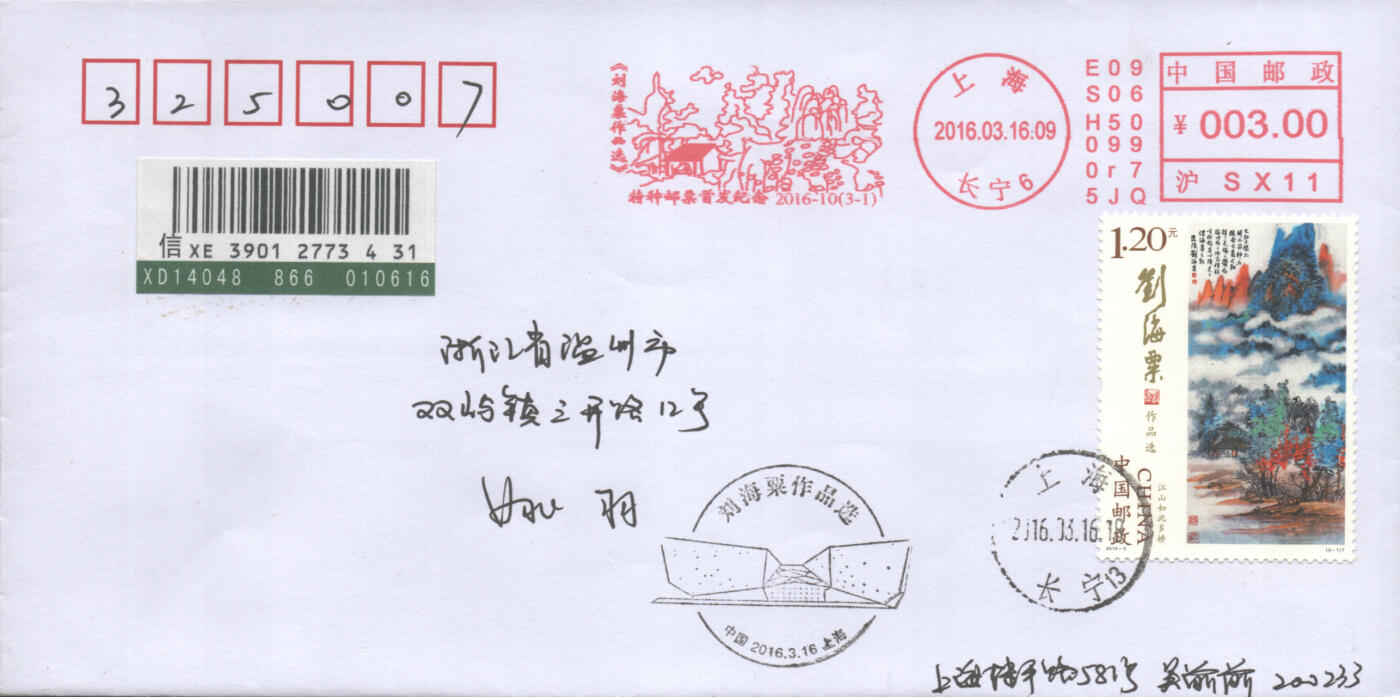 325007
《刘海粟作品选》
特种邮票首发纪念 2016-10(3-1)
上海
2016.03.16:09
长宁6
E09
S06
H50
099
0r7
5JQ
中国邮政
¥ 003.00
沪 SX11
信 XE 3901 2773 4 31
XD14048 866 010616
1.20元
劉海粟
作品选
江山如此多娇
中国邮政
CHINA
2016-3
(3-1)T
浙江省温州市
双屿镇三开路12号
刘海粟作品选
中国 2016.3.16 上海
上海
2016.03.16.1
长宁13
上海博平路581号 吴俞俞 200233